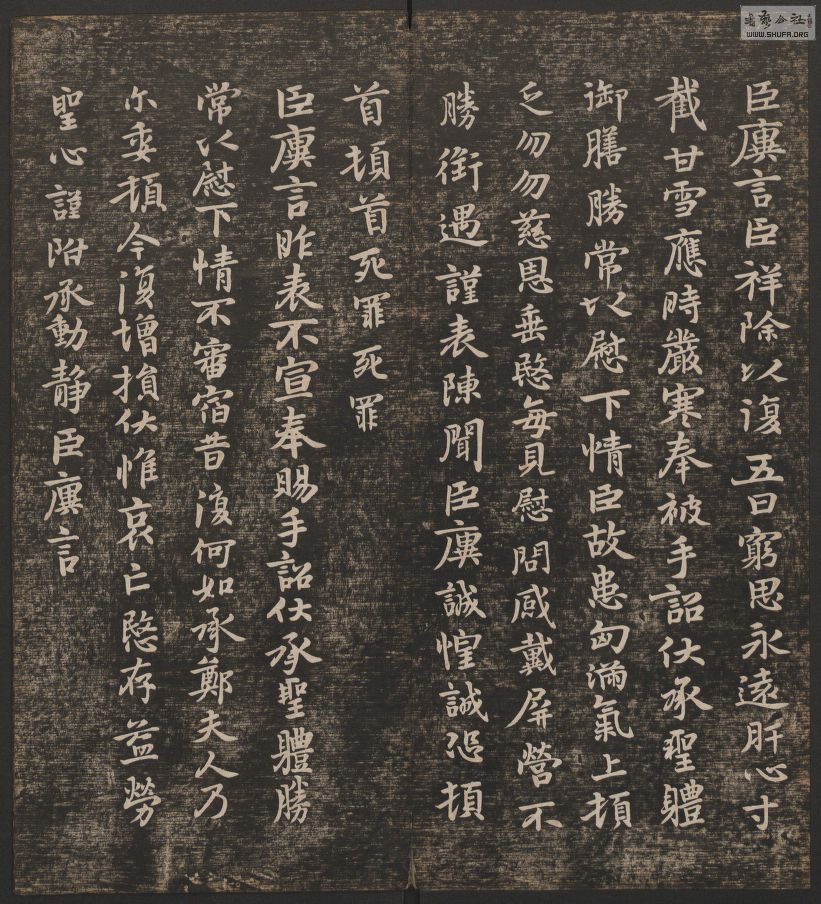 臣廙言臣祥除以復五日窮思永遠肝心寸
截甘雪應時嚴寒奉被手詔伏承聖體
御膳勝常以慰下情臣故患匈滿氣上頓
乏勿勿慈恩垂愍每見慰問感戴屏營不
勝銜遇謹表陳聞臣廙誠惶誠恐頓
首頓首死罪死罪
臣廙言昨表不宣奉賜手詔伏承聖體勝
常以慰下情不審宿昔復何如承鄭夫人乃
尔委頓今復增損伏惟哀亡愍存益勞
聖心謹附承動静臣廙言
書法公社
WWW.SHUFA.ORG